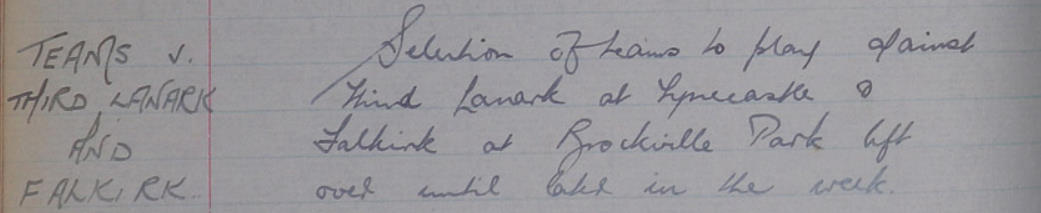 TEAMS v.
THIRD LANARK
AND
FALKIRK.
Selection of teams to play against
Third Lanark at Tynecastle &
Falkirk at Brockville Park left
over until later in the week.